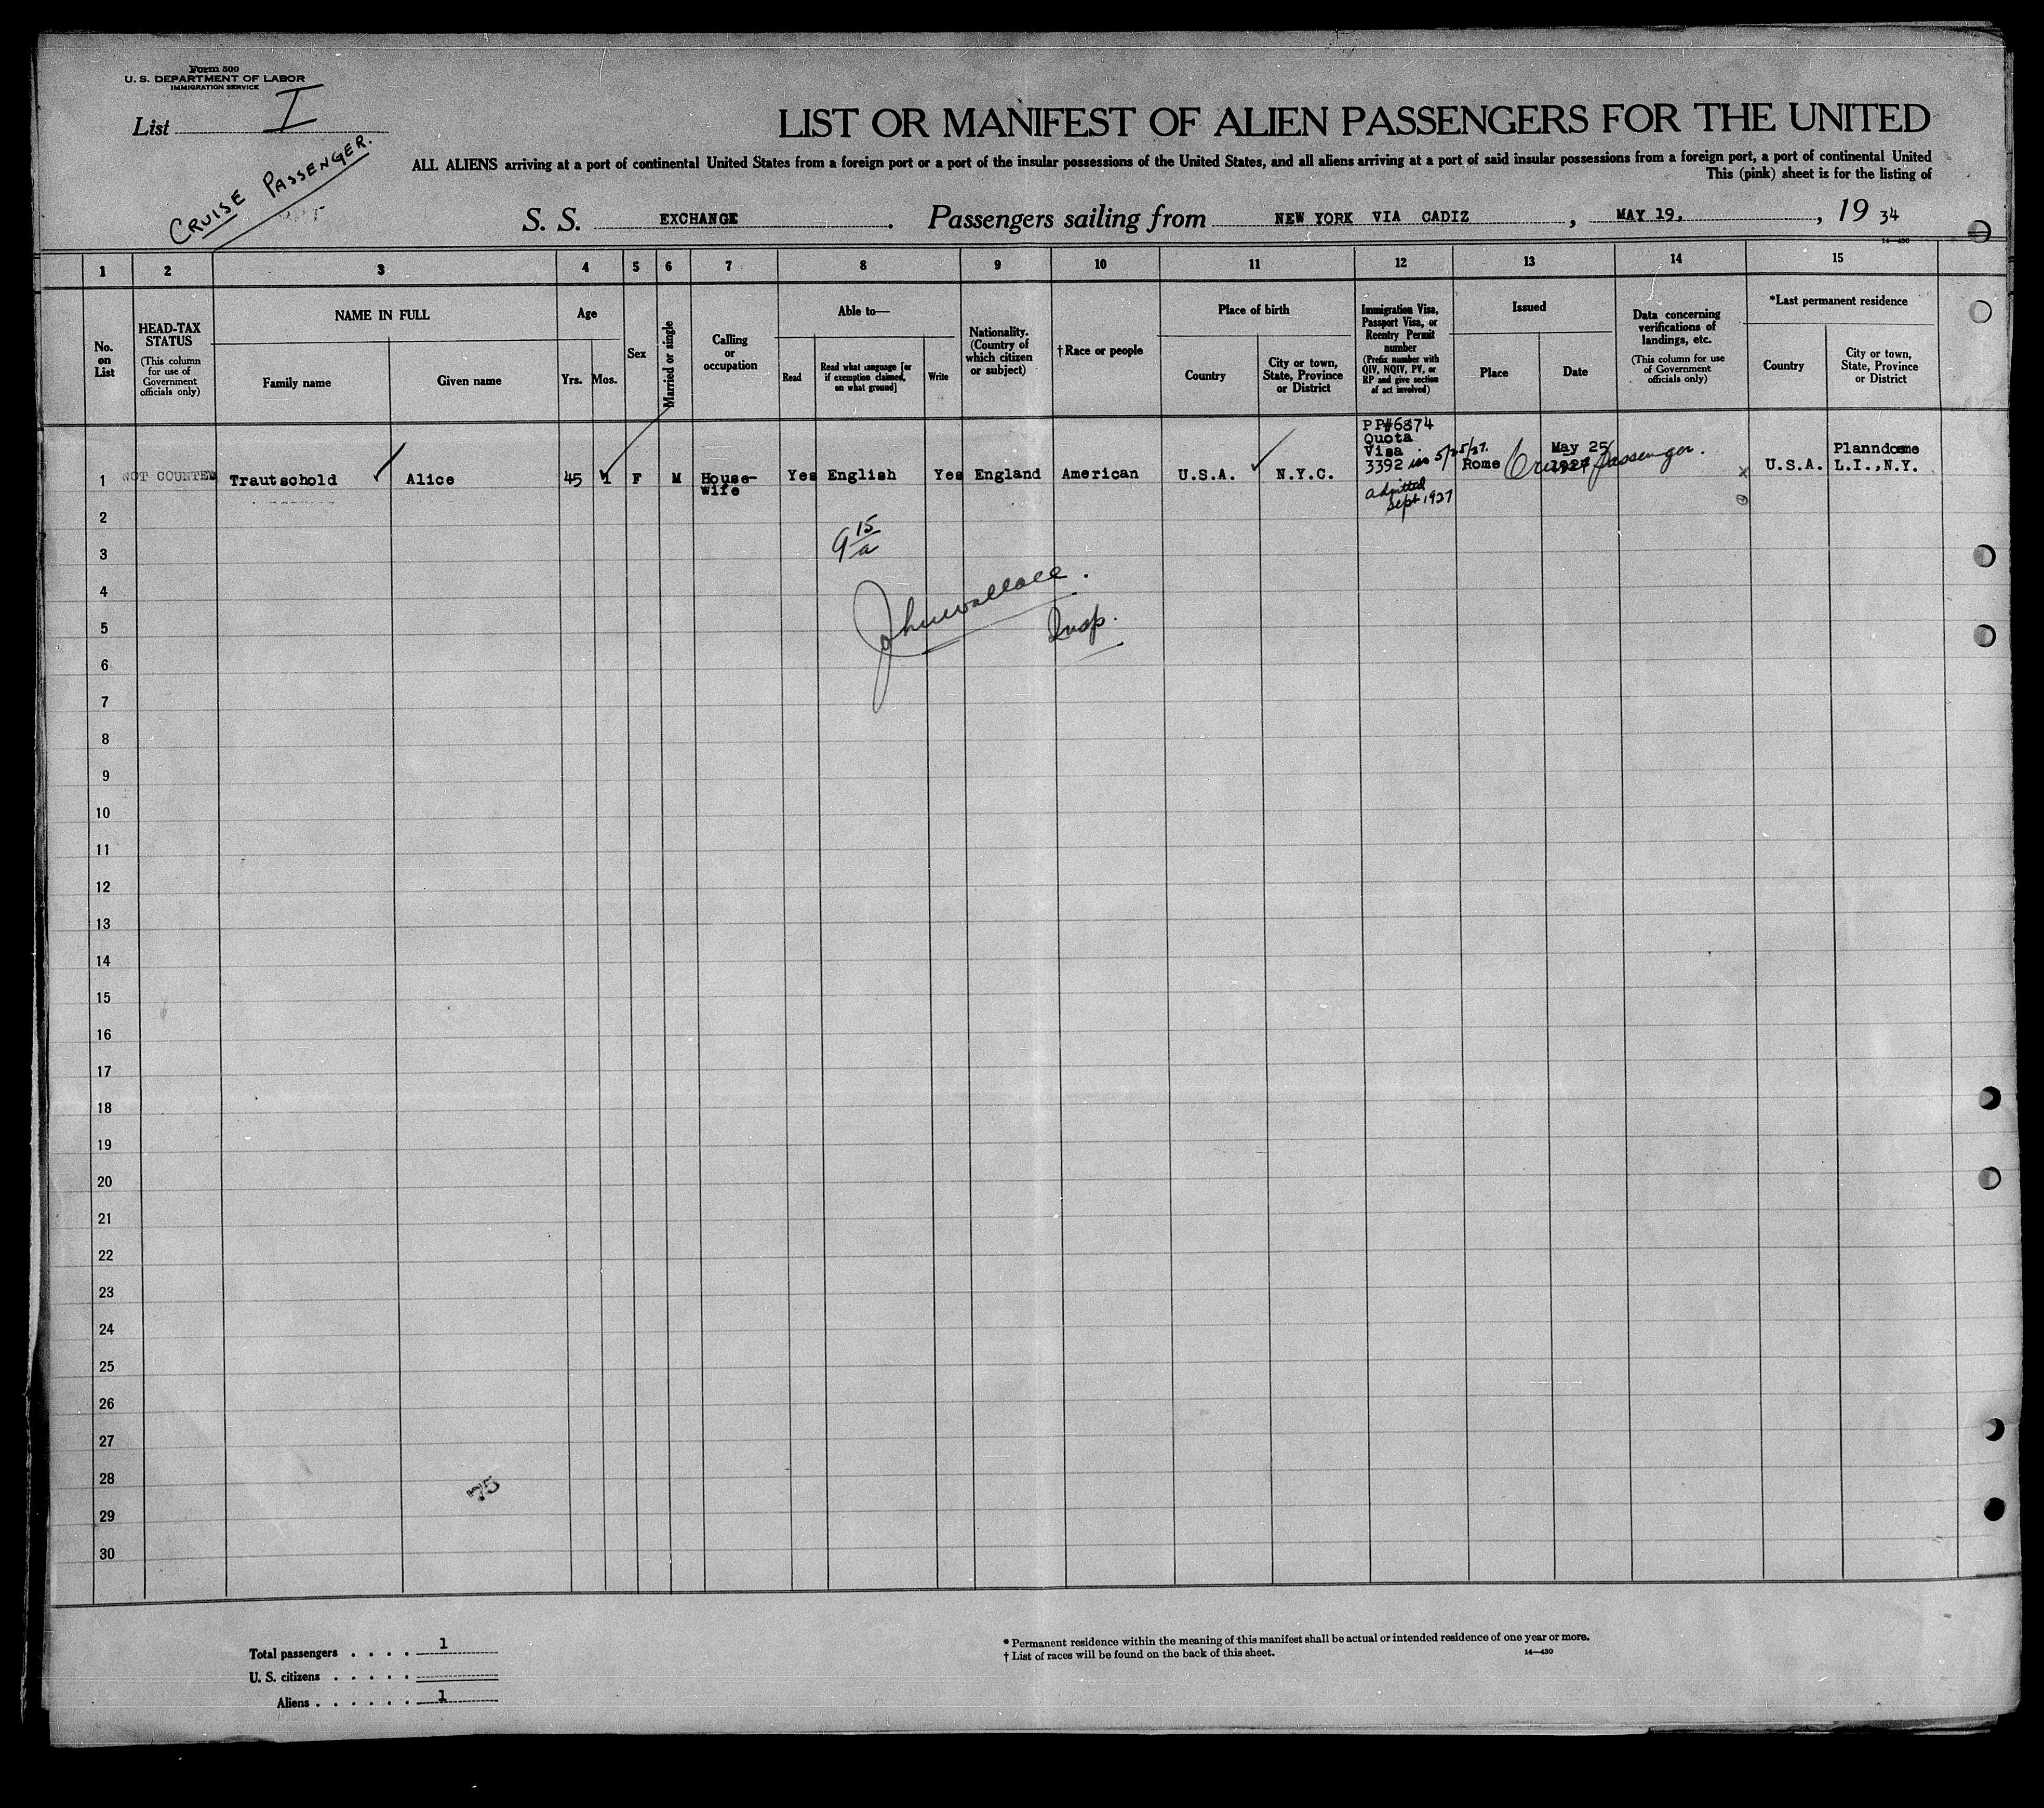 Form 500
U. S. DEPARTMENT OF LABOR
IMMIGRATION SERVICE
List I
CRUISE PASSENGER.
LIST OR MANIFEST OF ALIEN PASSENGERS FOR THE UNITED
ALL ALIENS arriving at a port of continental United States from a foreign port or a port of the insular possessions of the United States, and all aliens arriving at a port of said insular possessions from a foreign port, a port of continental United
This (pink) sheet is for the listing of
S. S. EXCHANGE. Passengers sailing from NEW YORK VIA CADIZ, MAY 19, , 19 34
14—430
1 2 3 4 5 6 7 8 9 10 11 12 13 14 15
No. on List
HEAD-TAX STATUS
(This column for use of Government officials only)
NAME IN FULL
Family name
Given name
Age
Yrs. Mos.
Sex
Married or single
Calling or occupation
Able to—
Read
Read what language [or if exemption claimed, on what ground]
Write
Nationality. (Country of which citizen or subject)
†Race or people
Place of birth
Country
City or town, State, Province or District
Immigration Visa, Passport Visa, or Reentry Permit number
(Prefix number with QIV, NQIV, PV, or RP and give section of act involved)
Issued
Place
Date
Data concerning verifications of landings, etc.
(This column for use of Government officials only)
*Last permanent residence
Country
City or town, State, Province or District
1 NOT COUNTED Trautschold Alice 45 1 F M House-wife Yes English Yes England American U.S.A. N.Y.C.
PP#6874
Quota
Visa
3392 iss 5/25/27.
admitted
Sept 1927
Rome
May 25
1927
Cruise passenger.
x
U.S.A.
Planndome
L.I.,N.Y.
2
3
9 15/a
4
John Wallace.
5
Insp.
6
7
8
9
10
11
12
13
14
15
16
17
18
19
20
21
22
23
24
25
26
27
28
75
29
30
Total passengers . . . . 1
U. S. citizens . . . . .
Aliens . . . . . . 1
* Permanent residence within the meaning of this manifest shall be actual or intended residence of one year or more.
† List of races will be found on the back of this sheet.
14—430